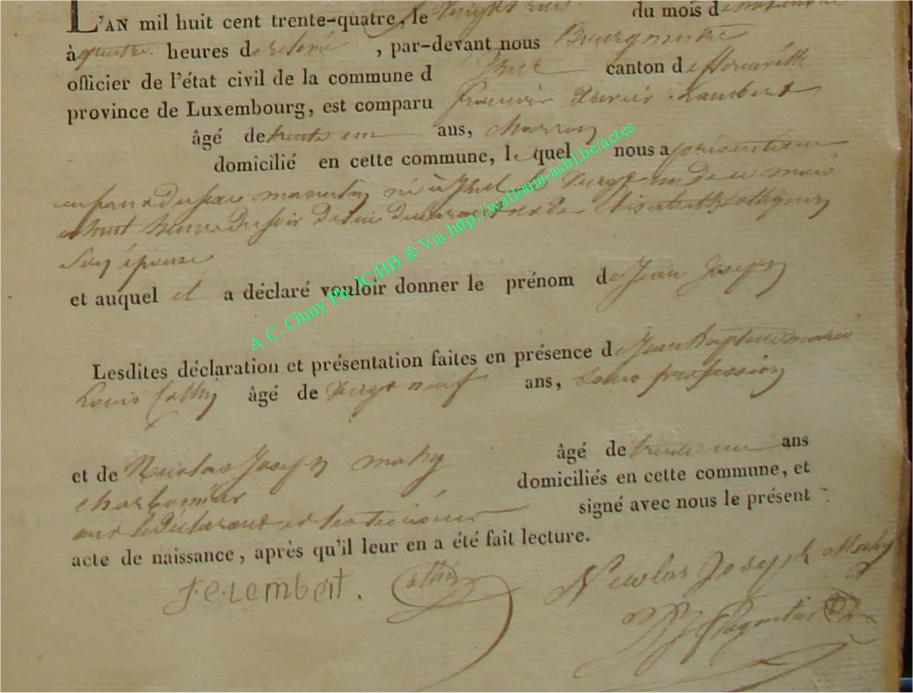 L'AN mil huit cent trente-quatre, le vingt trois du mois d
à quatre heures de relevé, par-devant nous Bourgmestre
officier de l'état civil de la commune d canton de
province de Luxembourg, est comparu francois Lambert
âgé de trente un ans,
domicilié en cette commune, lequel nous a présenté un
enfant du sexe masculin né à le vingt un de ce mois
à huit heures du soir de lui declarant et de Elisabeth Cathy
Son épouse
et auquel il a déclaré vouloir donner le prénom de Jean Joseph
Lesdites déclaration et présentation faites en présence de Jean Baptiste
Louis Cathy âgé de vingt neuf ans, sans profession
et de Nicolas Joseph mathy âgé de trente un ans
charbonnier domiciliés en cette commune, et
ont le declarant et les témoins signé avec nous le présent
acte de naissance, après qu'il leur en a été fait lecture.
J.e.Lembert. Cathy Nicolas Joseph Mathy
A.C. Chiny Ph. JCHB ® Via http://wallonia-asbl.be/actes